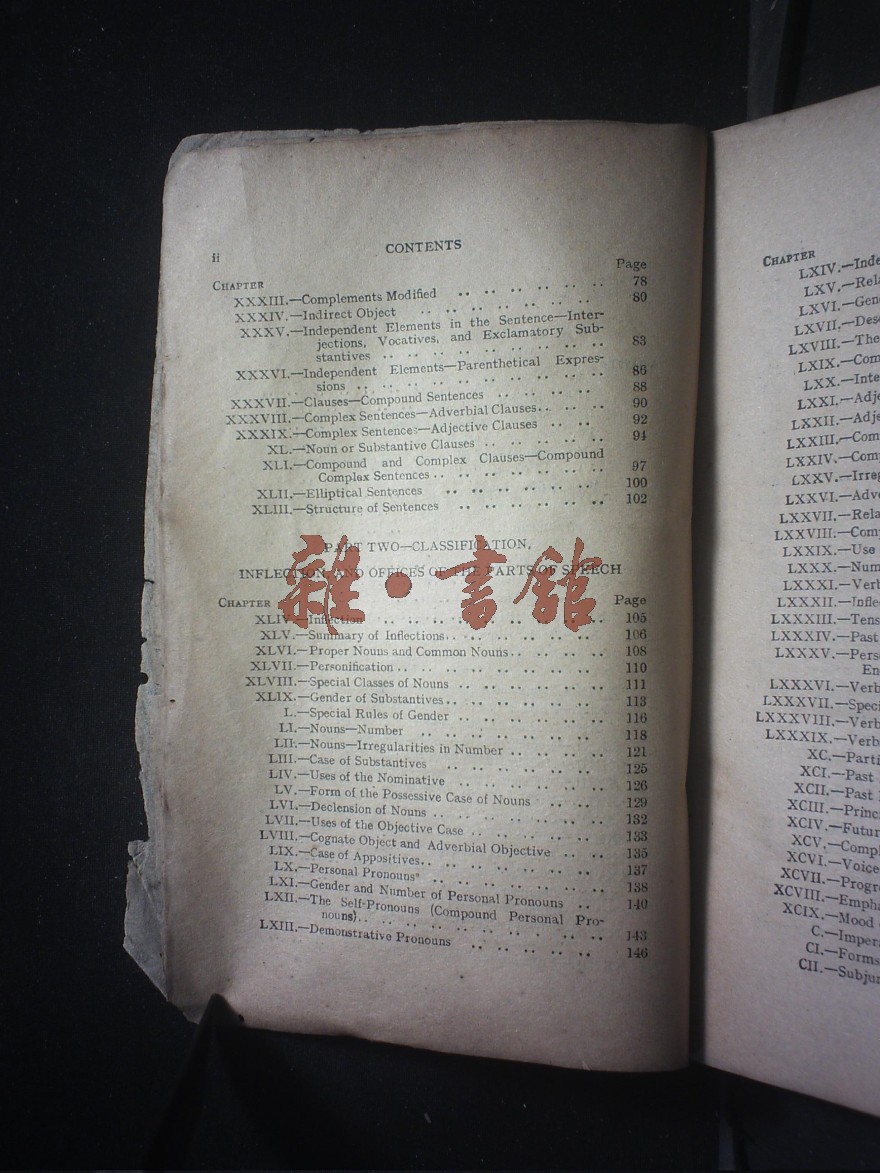 ii
CONTENTS
CHAPTER Page
XXXIII.—Complements Modified .. .. .. .. .. .. 78
XXXIV.—Indirect Object .. .. .. .. .. .. .. 80
XXXV.—Independent Elements in the Sentence—Inter-
jections, Vocatives, and Exclamatory Sub-
stantives .. .. .. .. .. .. .. .. .. 83
XXXVI.—Independent Elements—Parenthetical Expres-
sions .. .. .. .. .. .. .. .. .. .. 86
XXXVII.—Clauses—Compound Sentences .. .. .. .. 88
XXXVIII.—Complex Sentences—Adverbial Clauses.. .. .. 90
XXXIX.—Complex Sentences—Adjective Clauses .. .. 92
XL.—Noun or Substantive Clauses .. .. .. .. .. 94
XLI.—Compound and Complex Clauses—Compound
Complex Sentences .. .. .. .. .. .. .. 97
XLII.—Elliptical Sentences .. .. .. .. .. .. 100
XLIII.—Structure of Sentences .. .. .. .. .. .. 102
PART TWO—CLASSIFICATION,
INFLECTION AND OFFICES OF THE PARTS OF SPEECH
雜·書館
CHAPTER Page
XLIV.—Inflection .. .. .. .. .. .. .. .. .. 105
XLV.—Summary of Inflections.. .. .. .. .. .. 106
XLVI.—Proper Nouns and Common Nouns.. .. .. .. 108
XLVII.—Personification .. .. .. .. .. .. .. .. 110
XLVIII.—Special Classes of Nouns .. .. .. .. .. .. 111
XLIX.—Gender of Substantives.. .. .. .. .. .. 113
L.—Special Rules of Gender .. .. .. .. .. .. 116
LI.—Nouns—Number .. .. .. .. .. .. .. 118
LII.—Nouns—Irregularities in Number .. .. .. .. 121
LIII.—Case of Substantives .. .. .. .. .. .. 125
LIV.—Uses of the Nominative .. .. .. .. .. .. 126
LV.—Form of the Possessive Case of Nouns .. .. 129
LVI.—Declension of Nouns .. .. .. .. .. .. .. 132
LVII.—Uses of the Objective Case .. .. .. .. .. 133
LVIII.—Cognate Object and Adverbial Objective .. .. 135
LIX.—Case of Appositives.. .. .. .. .. .. .. 137
LX.—Personal Pronouns .. .. .. .. .. .. .. 138
LXI.—Gender and Number of Personal Pronouns .. 140
LXII.—The Self-Pronouns (Compound Personal Pro-
nouns).. .. .. .. .. .. .. .. .. .. 143
LXIII.—Demonstrative Pronouns .. .. .. .. .. 146
CHAPTER
LXIV.—Inde
LXV.—Rela
LXVI.—Gen
LXVII.—Des
LXVIII.—The
LXIX.—Com
LXX.—Inte
LXXI.—Adje
LXXII.—Adje
LXXIII.—Com
LXXIV.—Com
LXXV.—Irreg
LXXVI.—Adve
LXXVII.—Rela
LXXVIII.—Comp
LXXIX.—Use
LXXX.—Num
LXXXI.—Verb
LXXXII.—Infle
LXXXIII.—Tens
LXXXIV.—Past
LXXXV.—Pers
En
LXXXVI.—Verb
LXXXVII.—Speci
LXXXVIII.—Verb
LXXXIX.—Verb
XC.—Parti
XCI.—Past
XCII.—Past
XCIII.—Princi
XCIV.—Futur
XCV.—Compl
XCVI.—Voice
XCVII.—Progre
XCVIII.—Empha
XCIX.—Mood
C.—Impera
CI.—Forms
CII.—Subjun